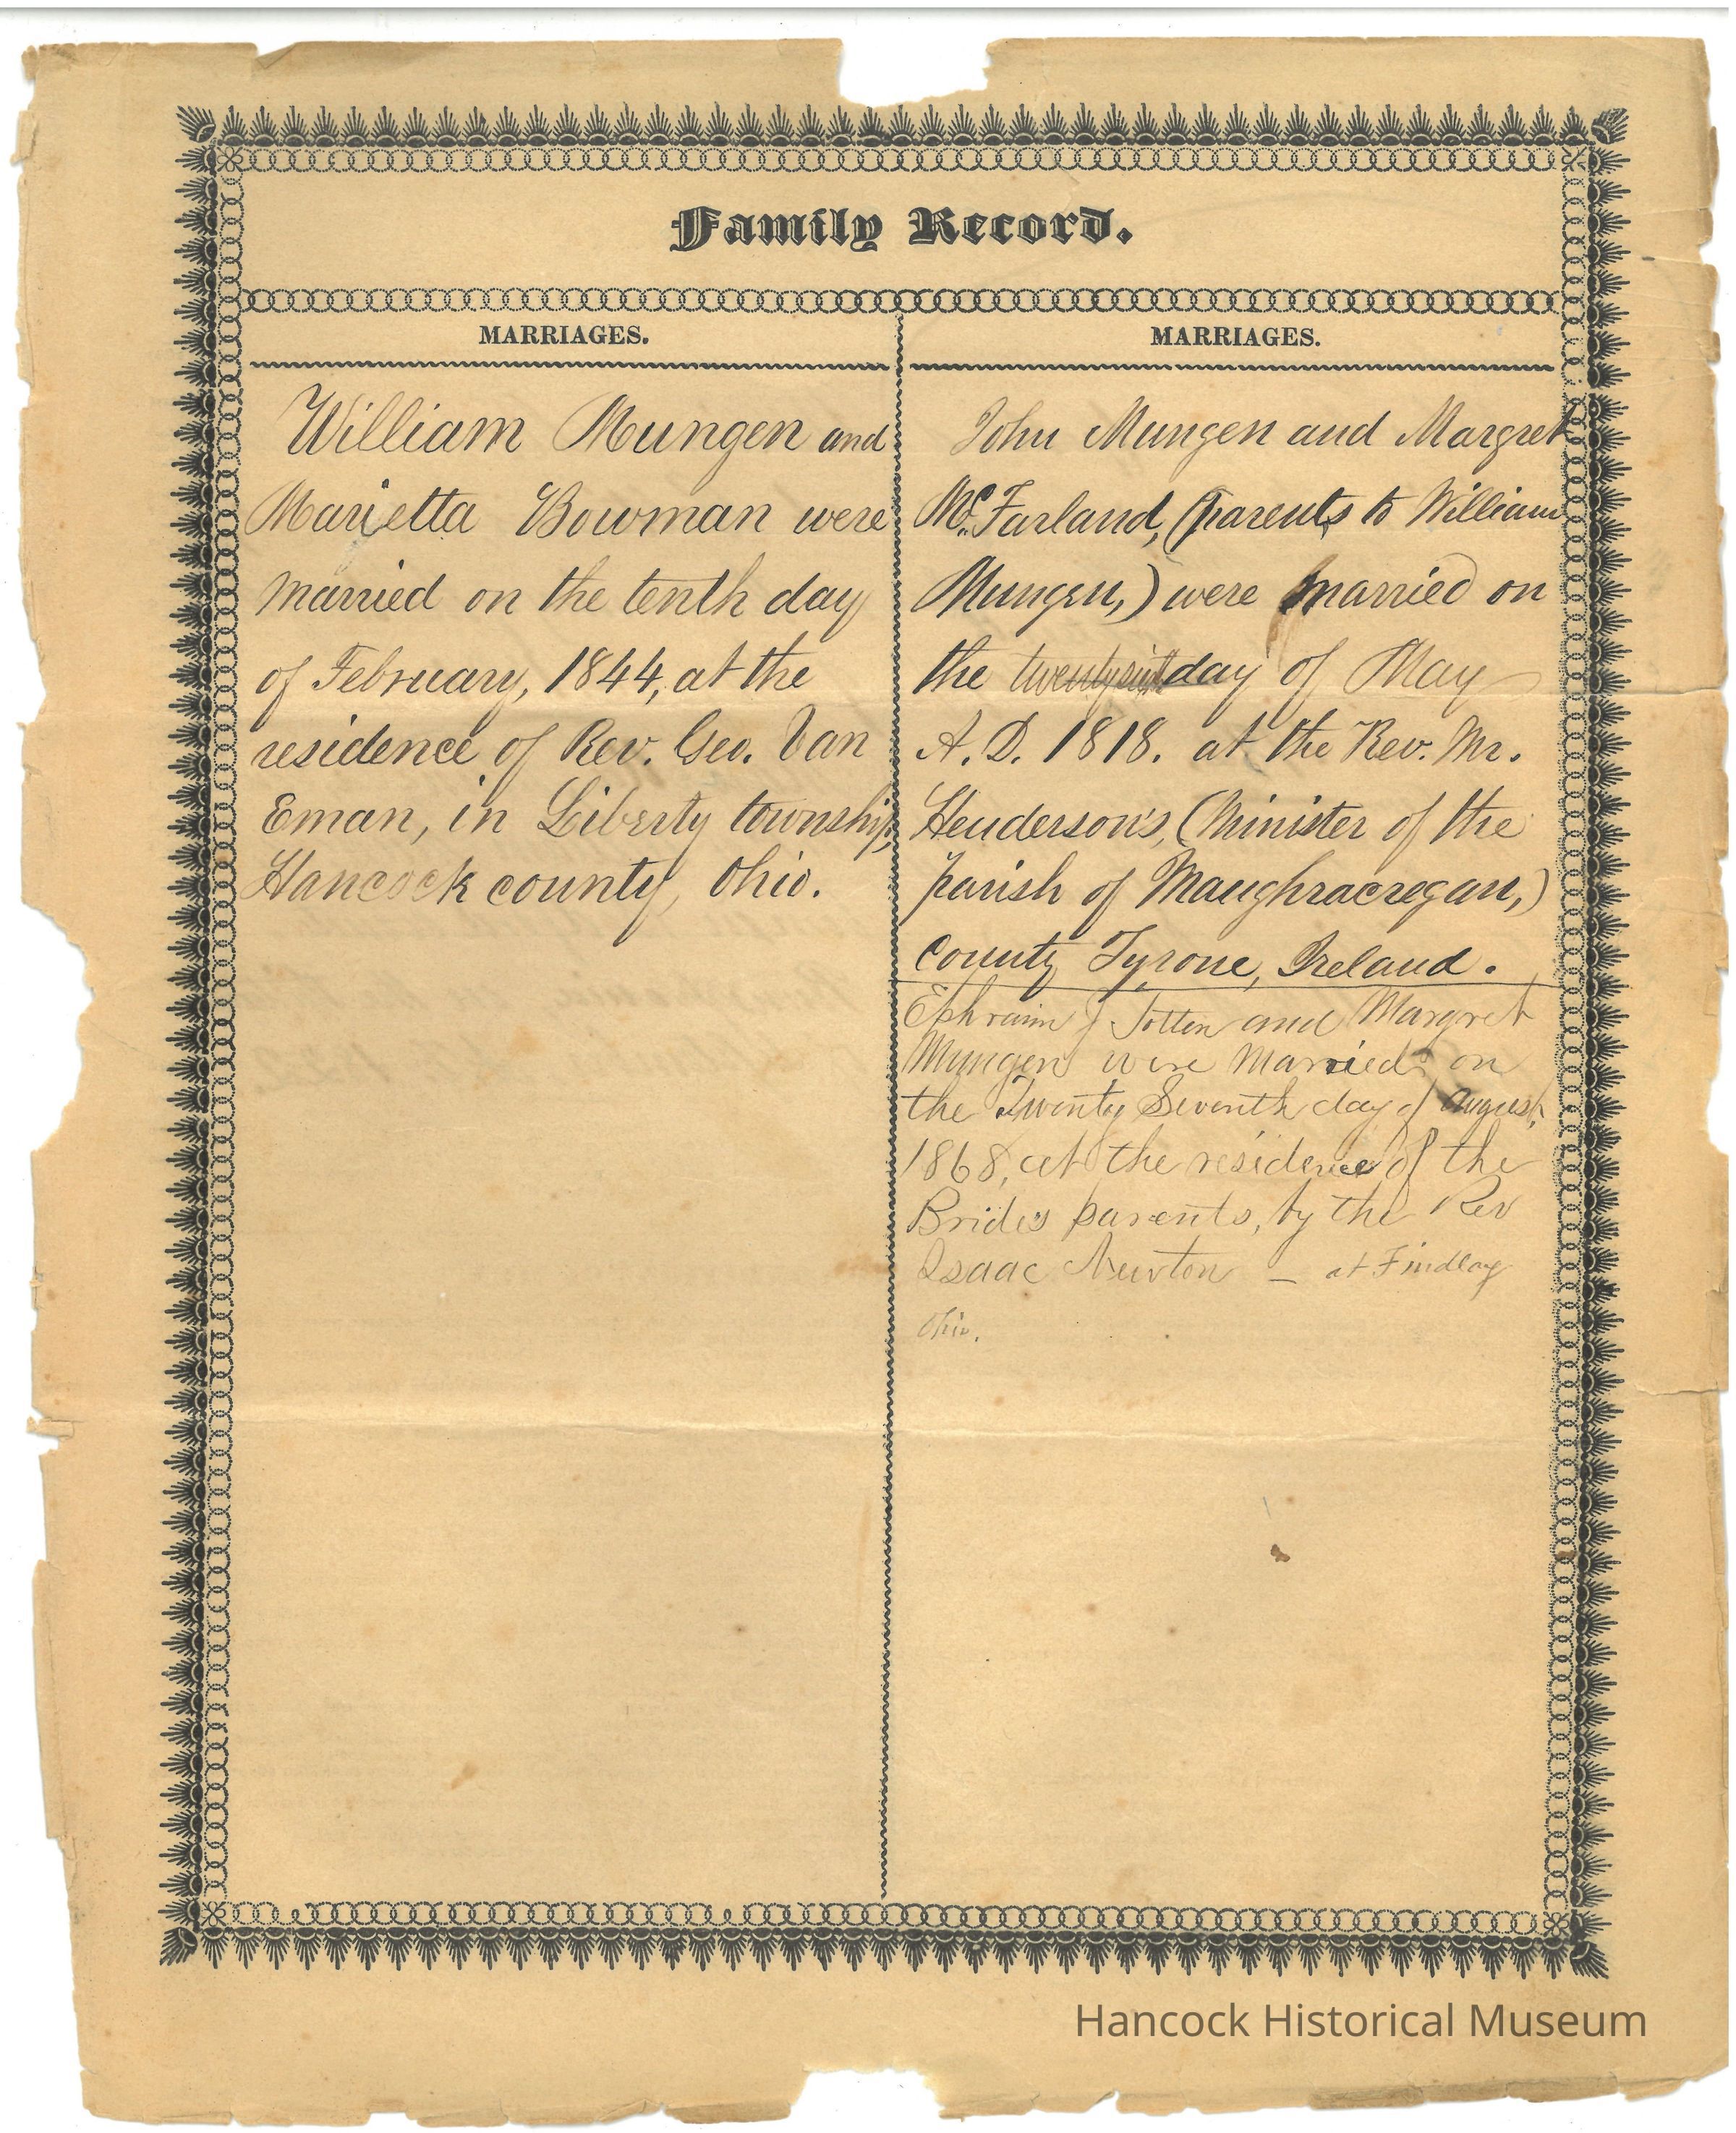 Family Record.
MARRIAGES.
William Mungen and
Marietta Bowman were
married on the tenth day
of February, 1844, at the
residence of Rev. Geo. Van
Eman, in Liberty township,
Hancock county, Ohio.
MARRIAGES.
John Mungen and Margret
Mc.Farland, (parents to William
Mungen,) were married on
the day of May
A.D. 1818. at the Rev. Mr.
Henderson's, (Minister of the
parish of Maughracregan,)
County Tyrone, Ireland.
Ephraim J Totten and Margret
Mungen were Married on
the Twenty Seventh day of August,
1868, at the residence of the
Bride's parents, by the Rev
Isaac Newton — at Findlay
Ohio.
Hancock Historical Museum